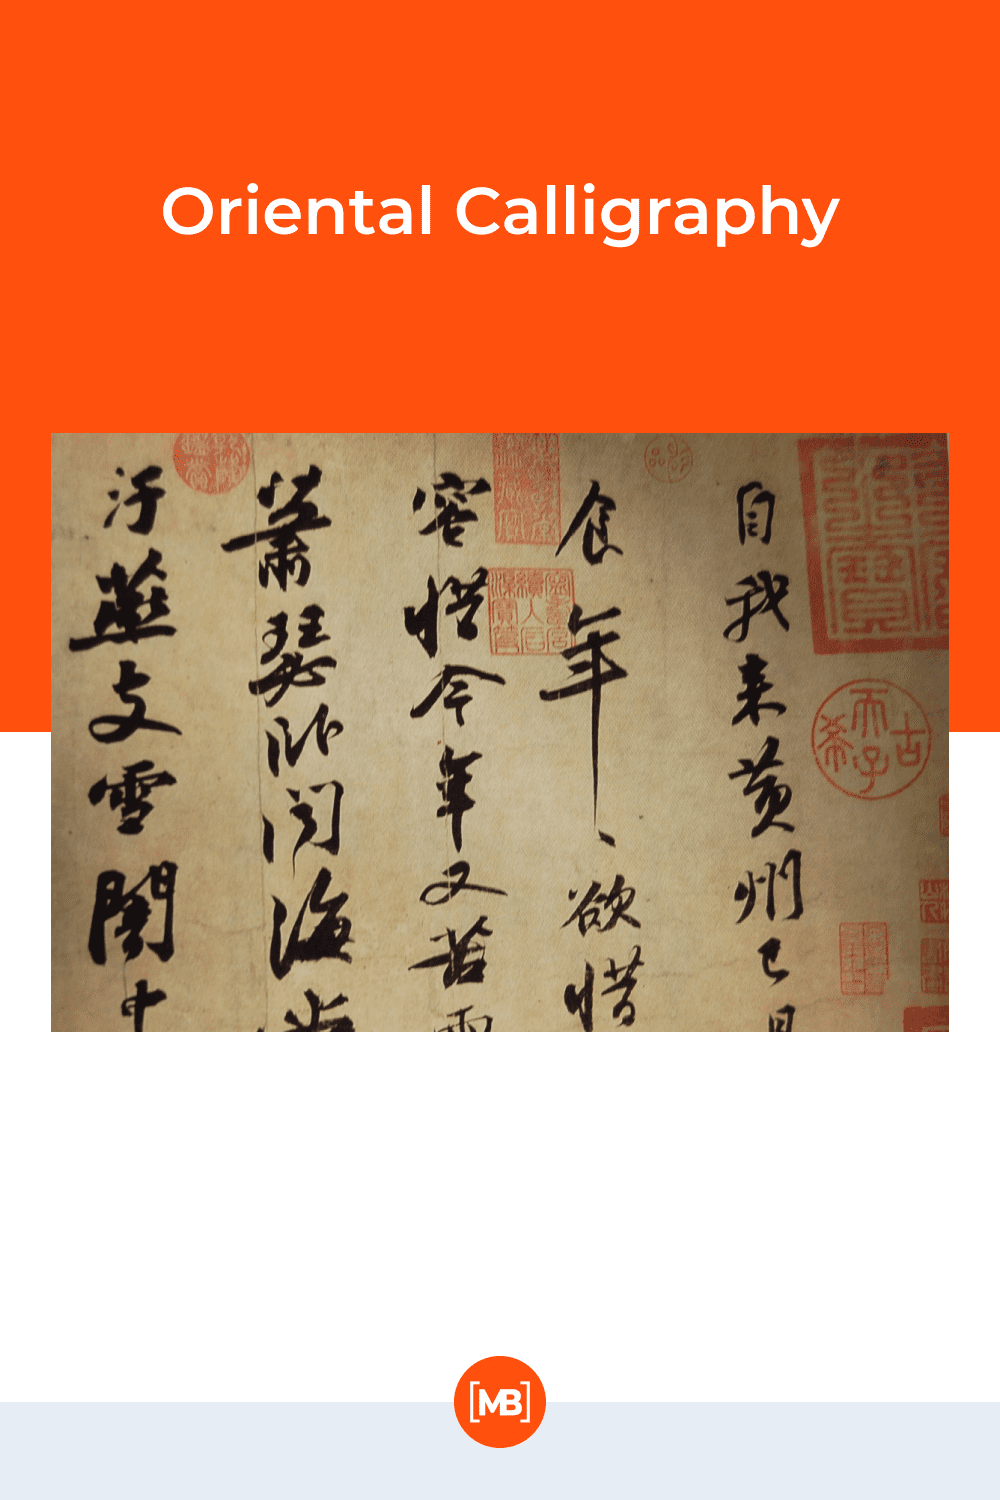 Oriental Calligraphy
自我來黃州已
食年、欲惜
容惜今年又苦雨
蕭瑟臥聞海
汙燕支雪闇中
古希天子
MB